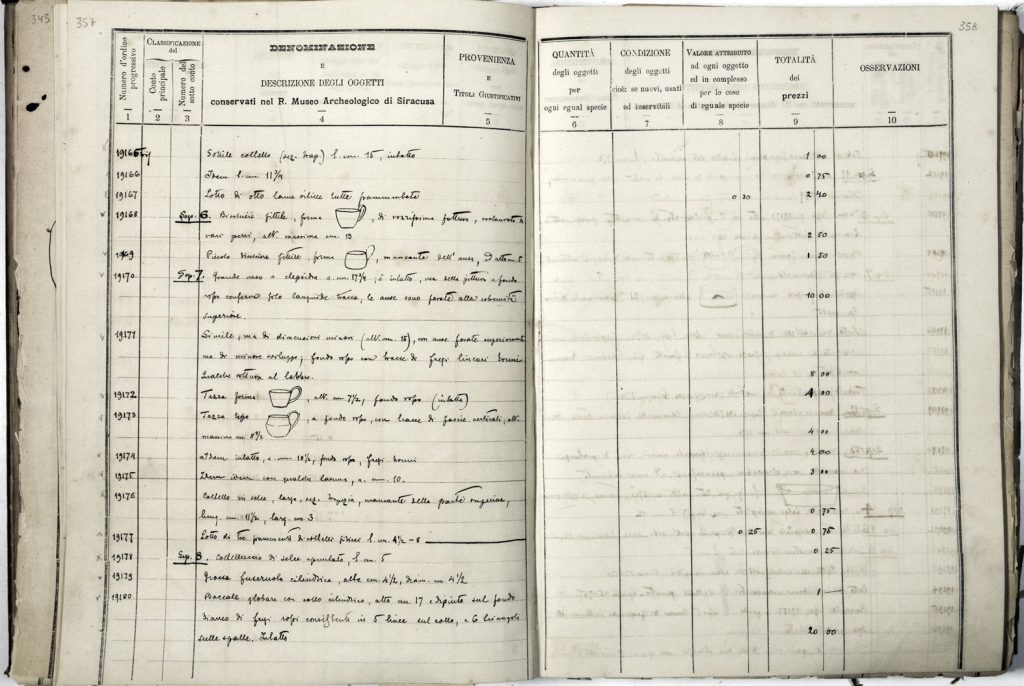 345 357
Numero d'ordine progressivo
CLASSIFICAZIONE
del
Conto principale
Numero del sotto conto
DENOMINAZIONE
E
DESCRIZIONE DEGLI OGGETTI
conservati nel R. Museo Archeologico di Siracusa
PROVENIENZA
E
TITOLI GIUSTIFICATIVI
1 2 3 4 5
19165 Sottile coltello (sez. trap.) l. cm. 15, intatto
19166 Idem l. cm. 11 3/4
19167 Lotto di otto lame silicee tutte frammentate
19168 Sep. 6. Bicchiere fittile, forma , di rozzissima fattura, restaurato da
vari pezzi, alt. massima cm. 13
Piccolo bicchiere fittile, forma , mancante dell'ansa,
19170 Sep. 7. Grande vaso a clepsidra a. cm. 17 3/4; è intatto, ma della pittura a fondo
rosso conserva solo languide tracce, le anse sono forate alla sommità
superiore.
19171 Simile, ma di dimensioni minori (alt. cm. 15), con anse forate superiormente
ma di minore sviluppo; fondo rosso con tracce di fregi lineari bruni
Qualche rottura al labbro.
19172 Tazza forma , alt. cm 7 1/2, fondo rosso (intatta)
19173 Tazza tipo , a fondo rosso, con tracce di fascie verticali, alt.
massima cm.
19174 Idem intatta, a. cm 10 1/2, fondo rosso, fregi bruni
19175 Idem idem con qualche lacuna, a. cm. 10.
19176 Coltello in selce, largo, sez. , mancante della parte superiore,
lung. cm 11 1/2, larg. cm 3
19177 Lotto di tre frammenti di coltelli silicei l. cm. 4 1/2 - 8
19178 Sep. 8. Coltelluccio di selce spuntato, l. cm 5
19179 Grossa fuseruola cilindrica, alta cm. 4 1/2, diam. cm. 4 1/2
19180 Boccale globare con collo cilindrico, alto cm 17 e dipinto sul fondo
bianco di fregi rossi consistenti in 5 linee sul collo, e 6 triangoli
sulle spalle. Intatto
358
QUANTITÀ
degli oggetti
per
ogni egual specie
CONDIZIONE
degli oggetti
cioè: se nuovi, usati
od inservibili
VALORE ATTRIBUITO
ad ogni oggetto
ed in complesso
per le cose
di eguale specie
TOTALITÀ
dei
prezzi
OSSERVAZIONI
6 7 8 9 10
1 00
0 75
0 30 2 40
2 50
1 50
10 00
8 00
4 00
4 00
4 00
3 00
0 75
0 25 0 75
0 25
1 —
20 00